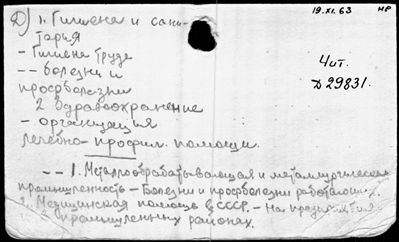 19.XI.63 нр
Д) 1. Гигиена и сани-
тария
- Гигиена труда
-- болезни и
профболезни
Чит.
Д 29831.
2 Здравоохранение
- организация
лечебно-профил. помощи.
-- 1. Металлообрабатывающая и металлургическая
промышленность - Болезни и профболезни работающих.
2. Медицинская помощь в СССР. - На
в промышленных районах.